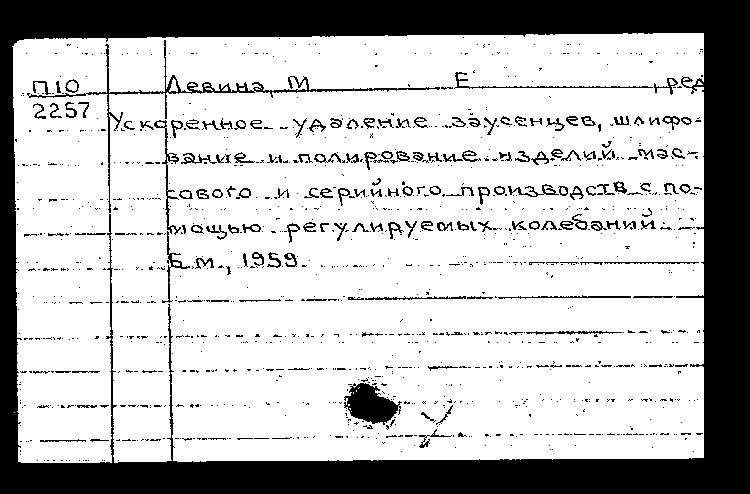 П10 Левина, М Е , ред
2257
Ускоренное удаление заусенцев, шлифо-
вание и полирование изделий мас-
сового и серийного производств с по-
мощью регулируемых колебаний.
Б.м., 1959.